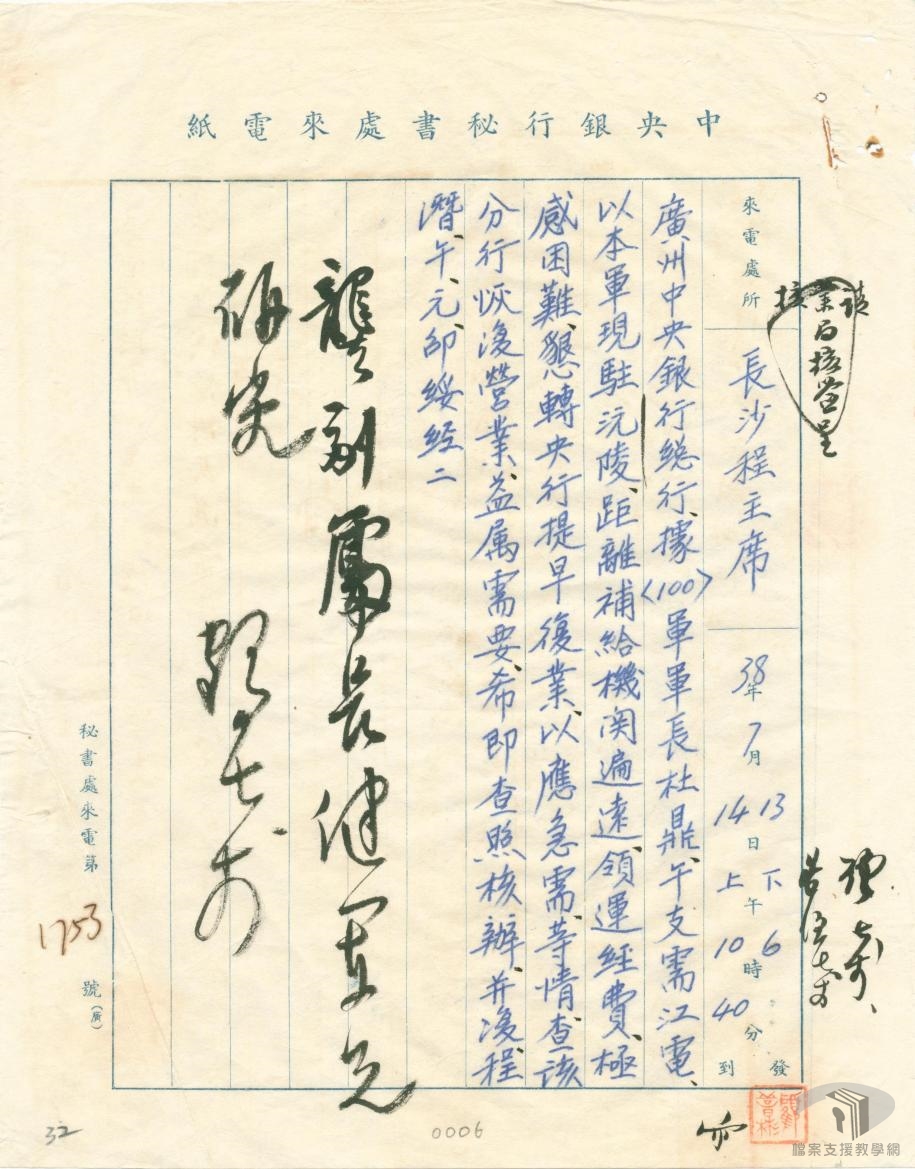 中央銀行秘書處來電紙
來電處所
長沙程主席
38年7月
13
14日
下
上午
6
10時
40分
發
到
廣州中央銀行總行、據〈100〉軍軍長杜鼎、午支需江電、
以本軍現駐沅陵、距離補給機関遍遠、領運經費、極
感困難、懇轉央行提早復業、以應急需、等情、查該
分行恢復營業、益属需要、希即查照核辦、并復、程
潛、午、元、邵綏經二
龔副處長健軍兄
秘書處來電第
1753
號(廣)
32
0006
檔案支援教學網